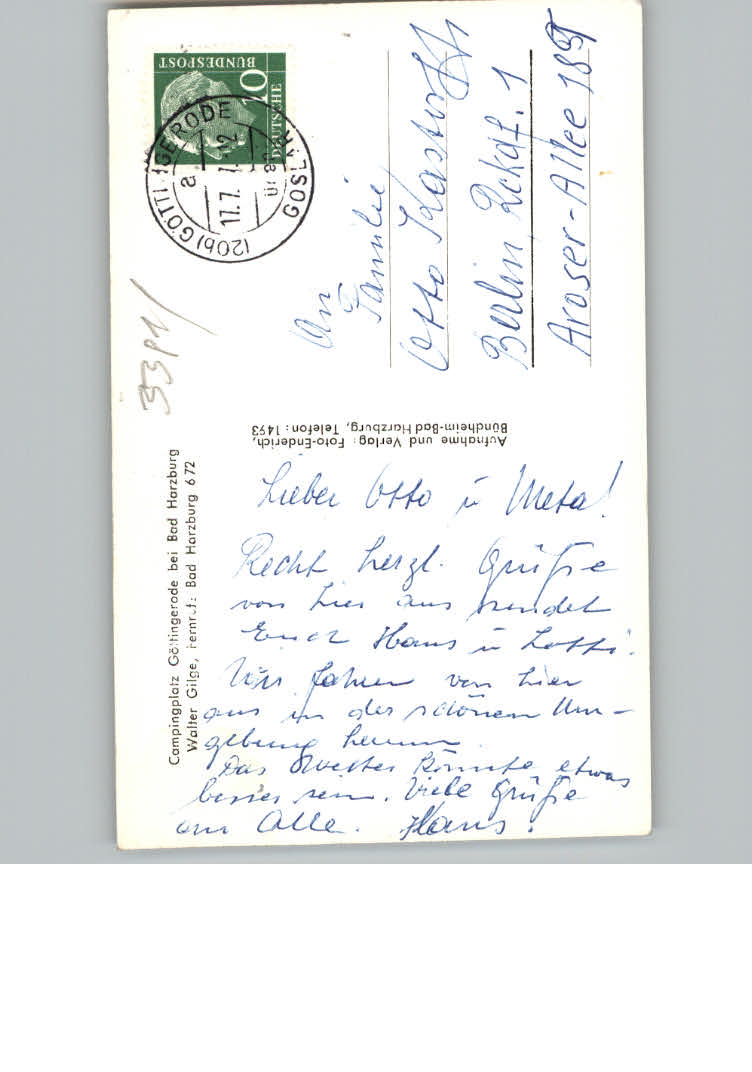 Campingplatz Göttingerode bei Bad Harzburg
Walter Gilge, Fernruf: Bad Harzburg 672
Lieber Otto u Meta!
Recht herzl. Grüße
von hier aus sendet
Euch Hans u Lotti.
Wir fahren von hier
aus in der schönen Um-
gebung herum.
Das Wetter könnte etwas
besser sein. Viele Grüße
an Alle. Hans.
Aufnahme und Verlag: Foto-Enderich,
Bündheim-Bad Harzburg, Telefon: 1493
DEUTSCHE
BUNDESPOST
10
(20b) GÖTTINGERODE
ü. GOSLAR
a
17.7.
An
Familie
Otto Kastorff
Berlin, Rckdf. 1
Aroser-Allee